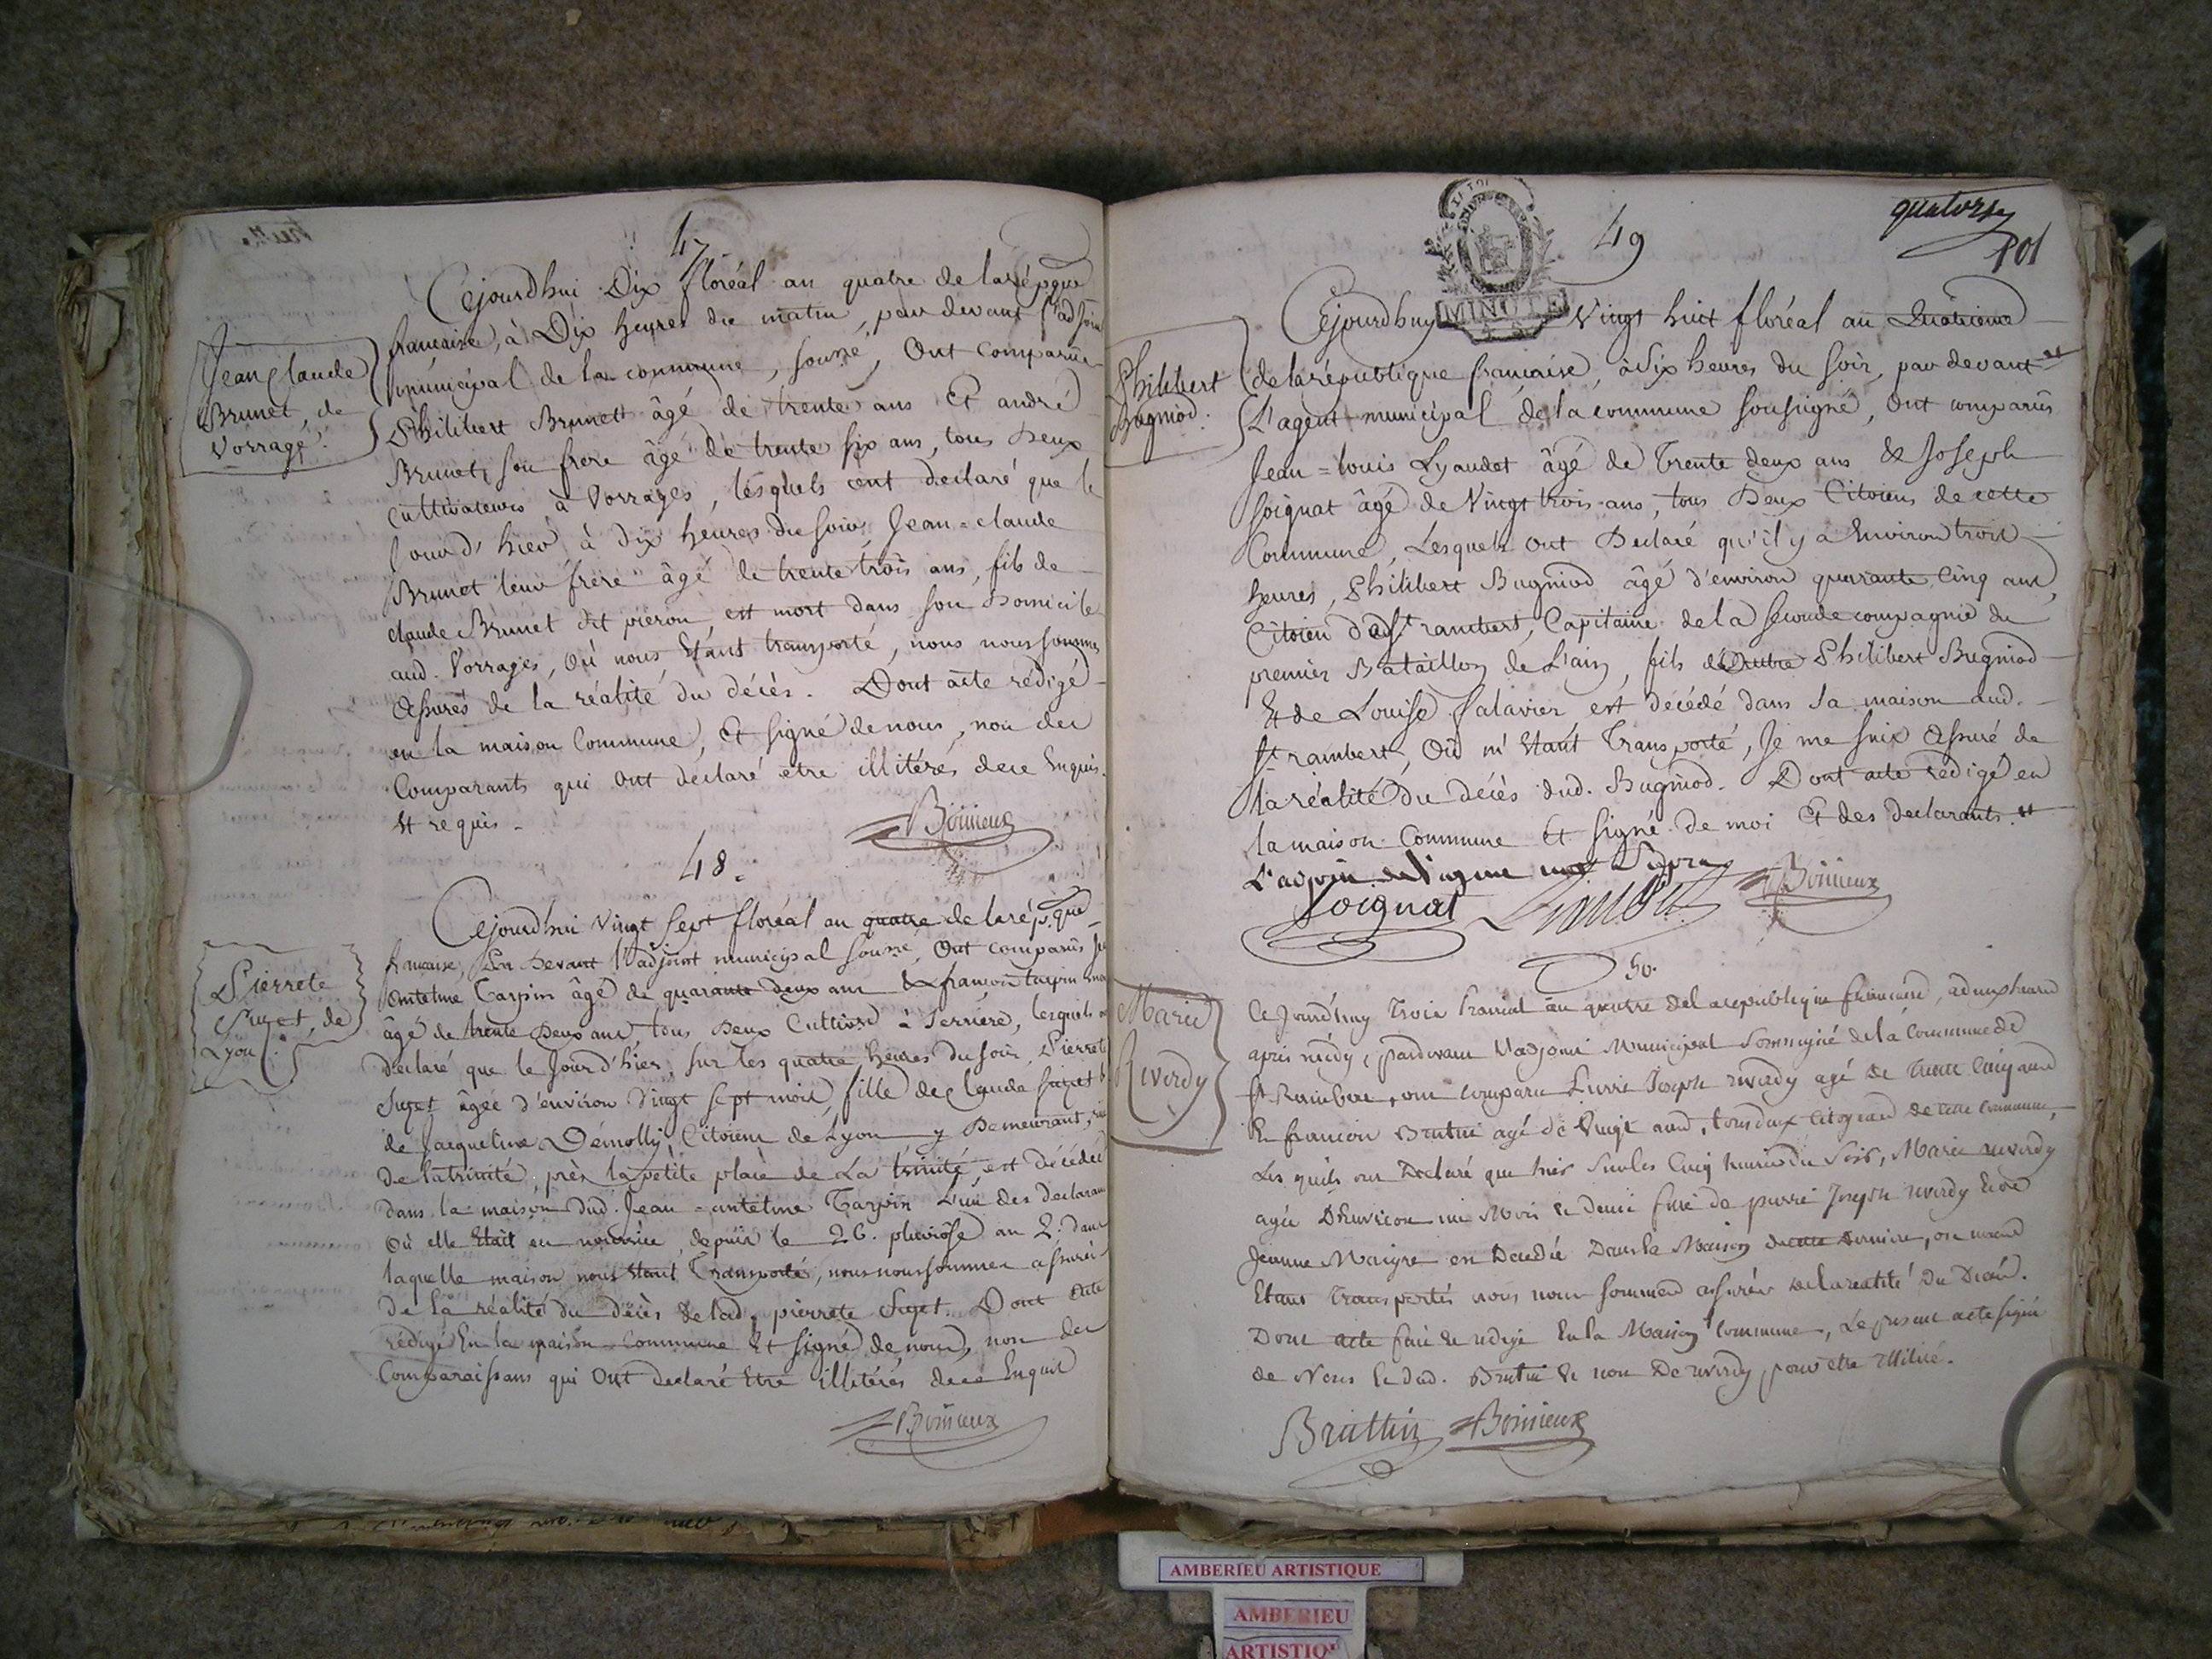 47
Cejourd'hui Dix floréal an quatre de la répque
francaise, à Dix heures du matin, par devant l'adjoint
municipal de la commune, soussé, Ont comparûs
Jean Claude
Brunet, de
Vorrage.
Philibert Brunett âgé de trente ans Et andré
Brunet, son frere âgé de trente six ans, tous Deux
cultivateurs à Vorrages, lesquels ont declaré que le
Jour d'hier à dix heures du soir, Jean=claude
Brunet leur frere âgé de trente trois ans, fils de
claude Brunet dit pieron, est mort dans son Domicile
aud. Vorrages, Où nous Etant transporté, nous nous sommes
assurés de la réalité du décès. Dont acte rédigé
en la maison Commune, Et signé de nous, non des
Comparants qui ont declaré etre illitérés de ce Enquis
Et requis.
Bonieux
48.
Cejourd'hui Vingt sept floréal an quatre de la rép.que
francaise, Par devant l'adjoint municipal soussé, Ont comparûs
Pierrete
Sujet, de
Lyon.
antelme Tarpin âgé de quarante deux ans & francois tarpin
âgé de trente Deux ans tous Deux Cultivrs à Serriere, lesquels
declaré que le Jour d'hier, sur les quatre heures du soir, Pierrete
Sujet âgée d'environ Vingt sept mois, fille de Claude Sujet
de Jacqueline Démolly, Citoiens de Lyon y Demeurant,
De la trinité, près la petite place de La trinité, est décédée
dans la maison dud. Jean=antelme Tarpin L'un des declarans
Où elle Etait en nourrice, depuis le 26. pluviôse an 2. dans
laquelle maison nous Etant Transporté, nous nous sommes assurés
De la réalité du décès de lad. pierrete Sujet. Dont acte
rédigé En la maison Commune Et signé de nous, non des
Comparaissans qui Ont declaré Etre illitérés de ce Enquis
Bonieux
quatorze
101
49
MINUTE
Cejourdhuy Vingt huit floréal an Quatrieme
de la république francaise, à Six heures du soir, par devant
Philibert
Bugniod.
L'agent municipal de la commune sousigné, Ont comparûs
Jean=louis Lyaudet âgé de Trente deux ans & Joseph
Soignat âgé de Vingt trois ans, tous Deux Citoiens de cette
Commune, Lesquels ont Declaré qu'il y a Environ trois
heures, Philibert Bugniod âgé d'environ quarante Cinq ans,
Citoien de St rambert, Capitaine de la seconde compagnie du
premier Bataillon de L'ain, fils de Philibert Bugniod
Et de Louise Salavier est décédé dans sa maison aud.
St rambert, Où m'Etant Transporté, Je me suis Assuré de
la réalité du décès dud. Bugniod. Dont acte rédigé en
la maison Commune Et signé de moi Et des Declarants.
L'adjoin
Soignat Bonieux
50.
Ce Jourd'huy Trois Prairial an quatre de la republique francaise, a deux heures
apres midy, pardevant l'adjoint Municipal Soussigné de la Commune de
Marie
Reverdy
St Rambert, ont comparu Pierre Joseph reverdy agé de Trente Cinq ans
Et francois Bruttin agé de Vingt ans, tous deux Citoyens de cette commune,
Les quels ont Declaré que hier Sur les Cinq heures du Soir, Marie reverdy
agée D'Environ un Mois & demi fille de pierre Joseph reverdy Et de
Jeanne Maigre est Decedée Dans la Maison de cette Derniere, ou nous
Etant Transportés nous nous sommes assurés de la realité du Décés.
Dont acte fait & redigé En la Maison Commune, Le present acte signé
de Nous & dud. Bruttin & non De reverdy pour etre illitéré.
Bruttin Bonieux
AMBERIEU ARTISTIQUE
AMBERIEU
ARTISTIQU